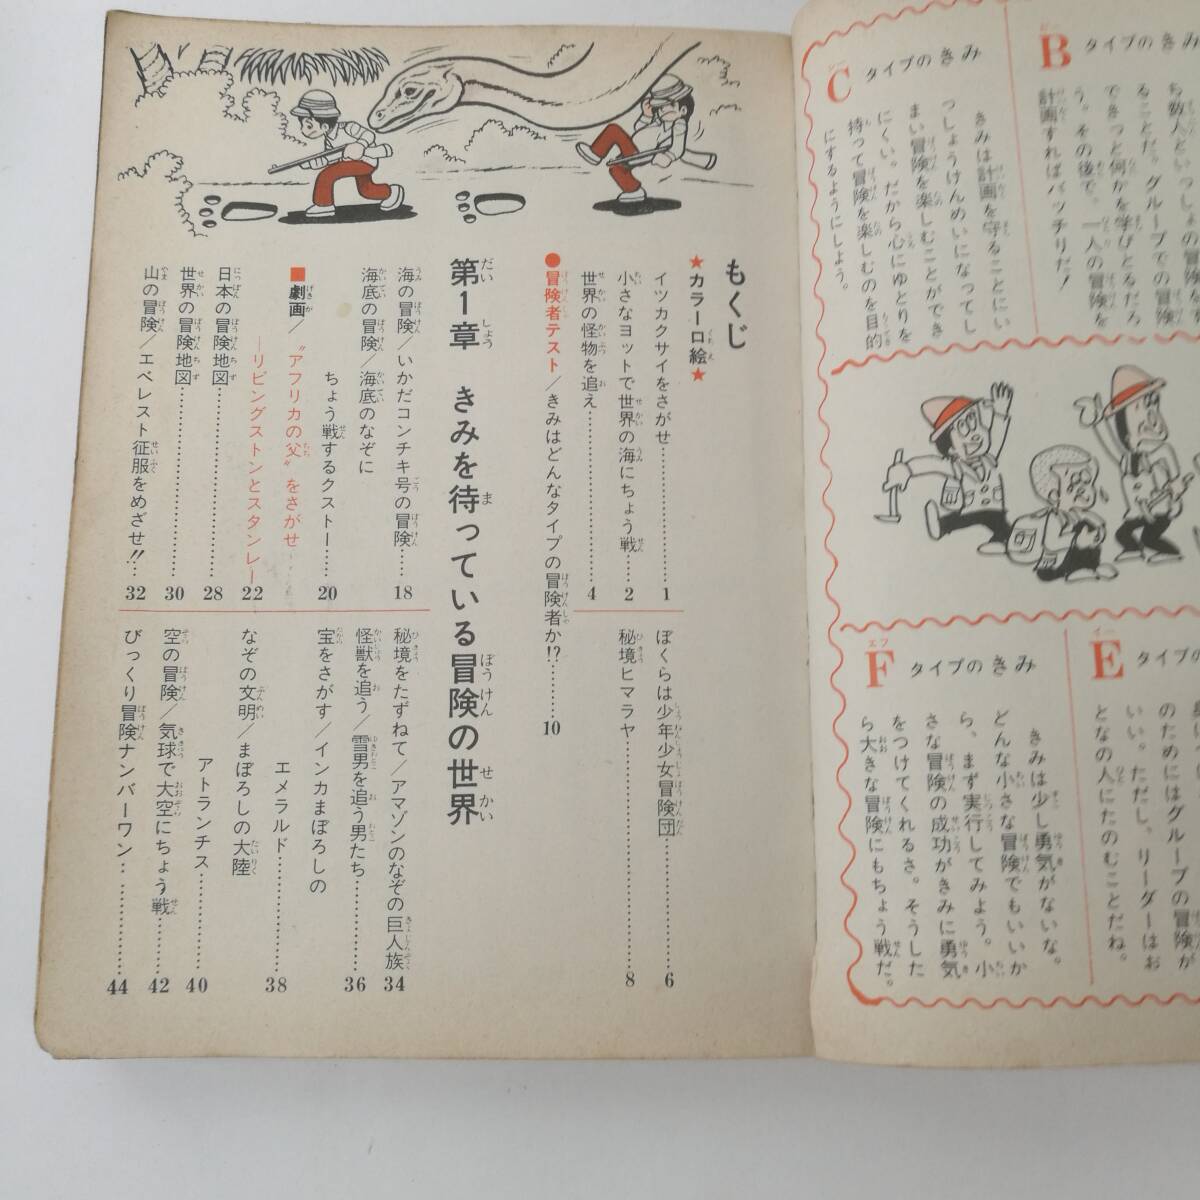 もくじ
★カラー口絵★
イツカクサイをさがせ…………1
小さなヨットで世界の海にちょう戦……2
世界の怪物を追え…………4
ぼくらは少年少女冒険団…………6
秘境ヒマラヤ…………8
●冒険者テスト/きみはどんなタイプの冒険者か!?…………10
第1章 きみを待っている冒険の世界
海の冒険/いかだコンチキ号の冒険……18
海底の冒険/海底のなぞに
ちょう戦するクストー……20
■劇画/“アフリカの父”をさがせ
―リビングストンとスタンレー―22
日本の冒険地図…………28
世界の冒険地図…………30
山の冒険/エベレスト征服をめざせ!!…32
秘境をたずねて/アマゾンのなぞの巨人族 34
怪獣を追う/雪男を追う男たち…………36
宝をさがす/インカまぼろしの
エメラルド…………38
なぞの文明/まぼろしの大陸
アトランチス…………40
空の冒険/気球で大空にちょう戦……42
びっくり冒険ナンバーワン…………44
B タイプのきみ
ち数人といっしょの冒険
ることだ。グループでの冒険
できっと何かを学びとるだろ
う。その後で、一人の冒険を
計画すればバッチリだ!
C タイプのきみ
きみは計画を守ることにい
っしょうけんめいになってし
まい冒険を楽しむことができ
にくい。だから心にゆとりを
持って冒険を楽しむのを目的
にするようにしよう。
E タイプの
のためにはグループの冒険が
いい。ただし、リーダーはお
となの人にたのむことだね。
F タイプのきみ
きみは少し勇気がないな。
どんな小さな冒険でもいいか
ら、まず実行してみよう。小
さな冒険の成功がきみに勇気
をつけてくれるさ。そうした
ら大きな冒険にもちょう戦だ。